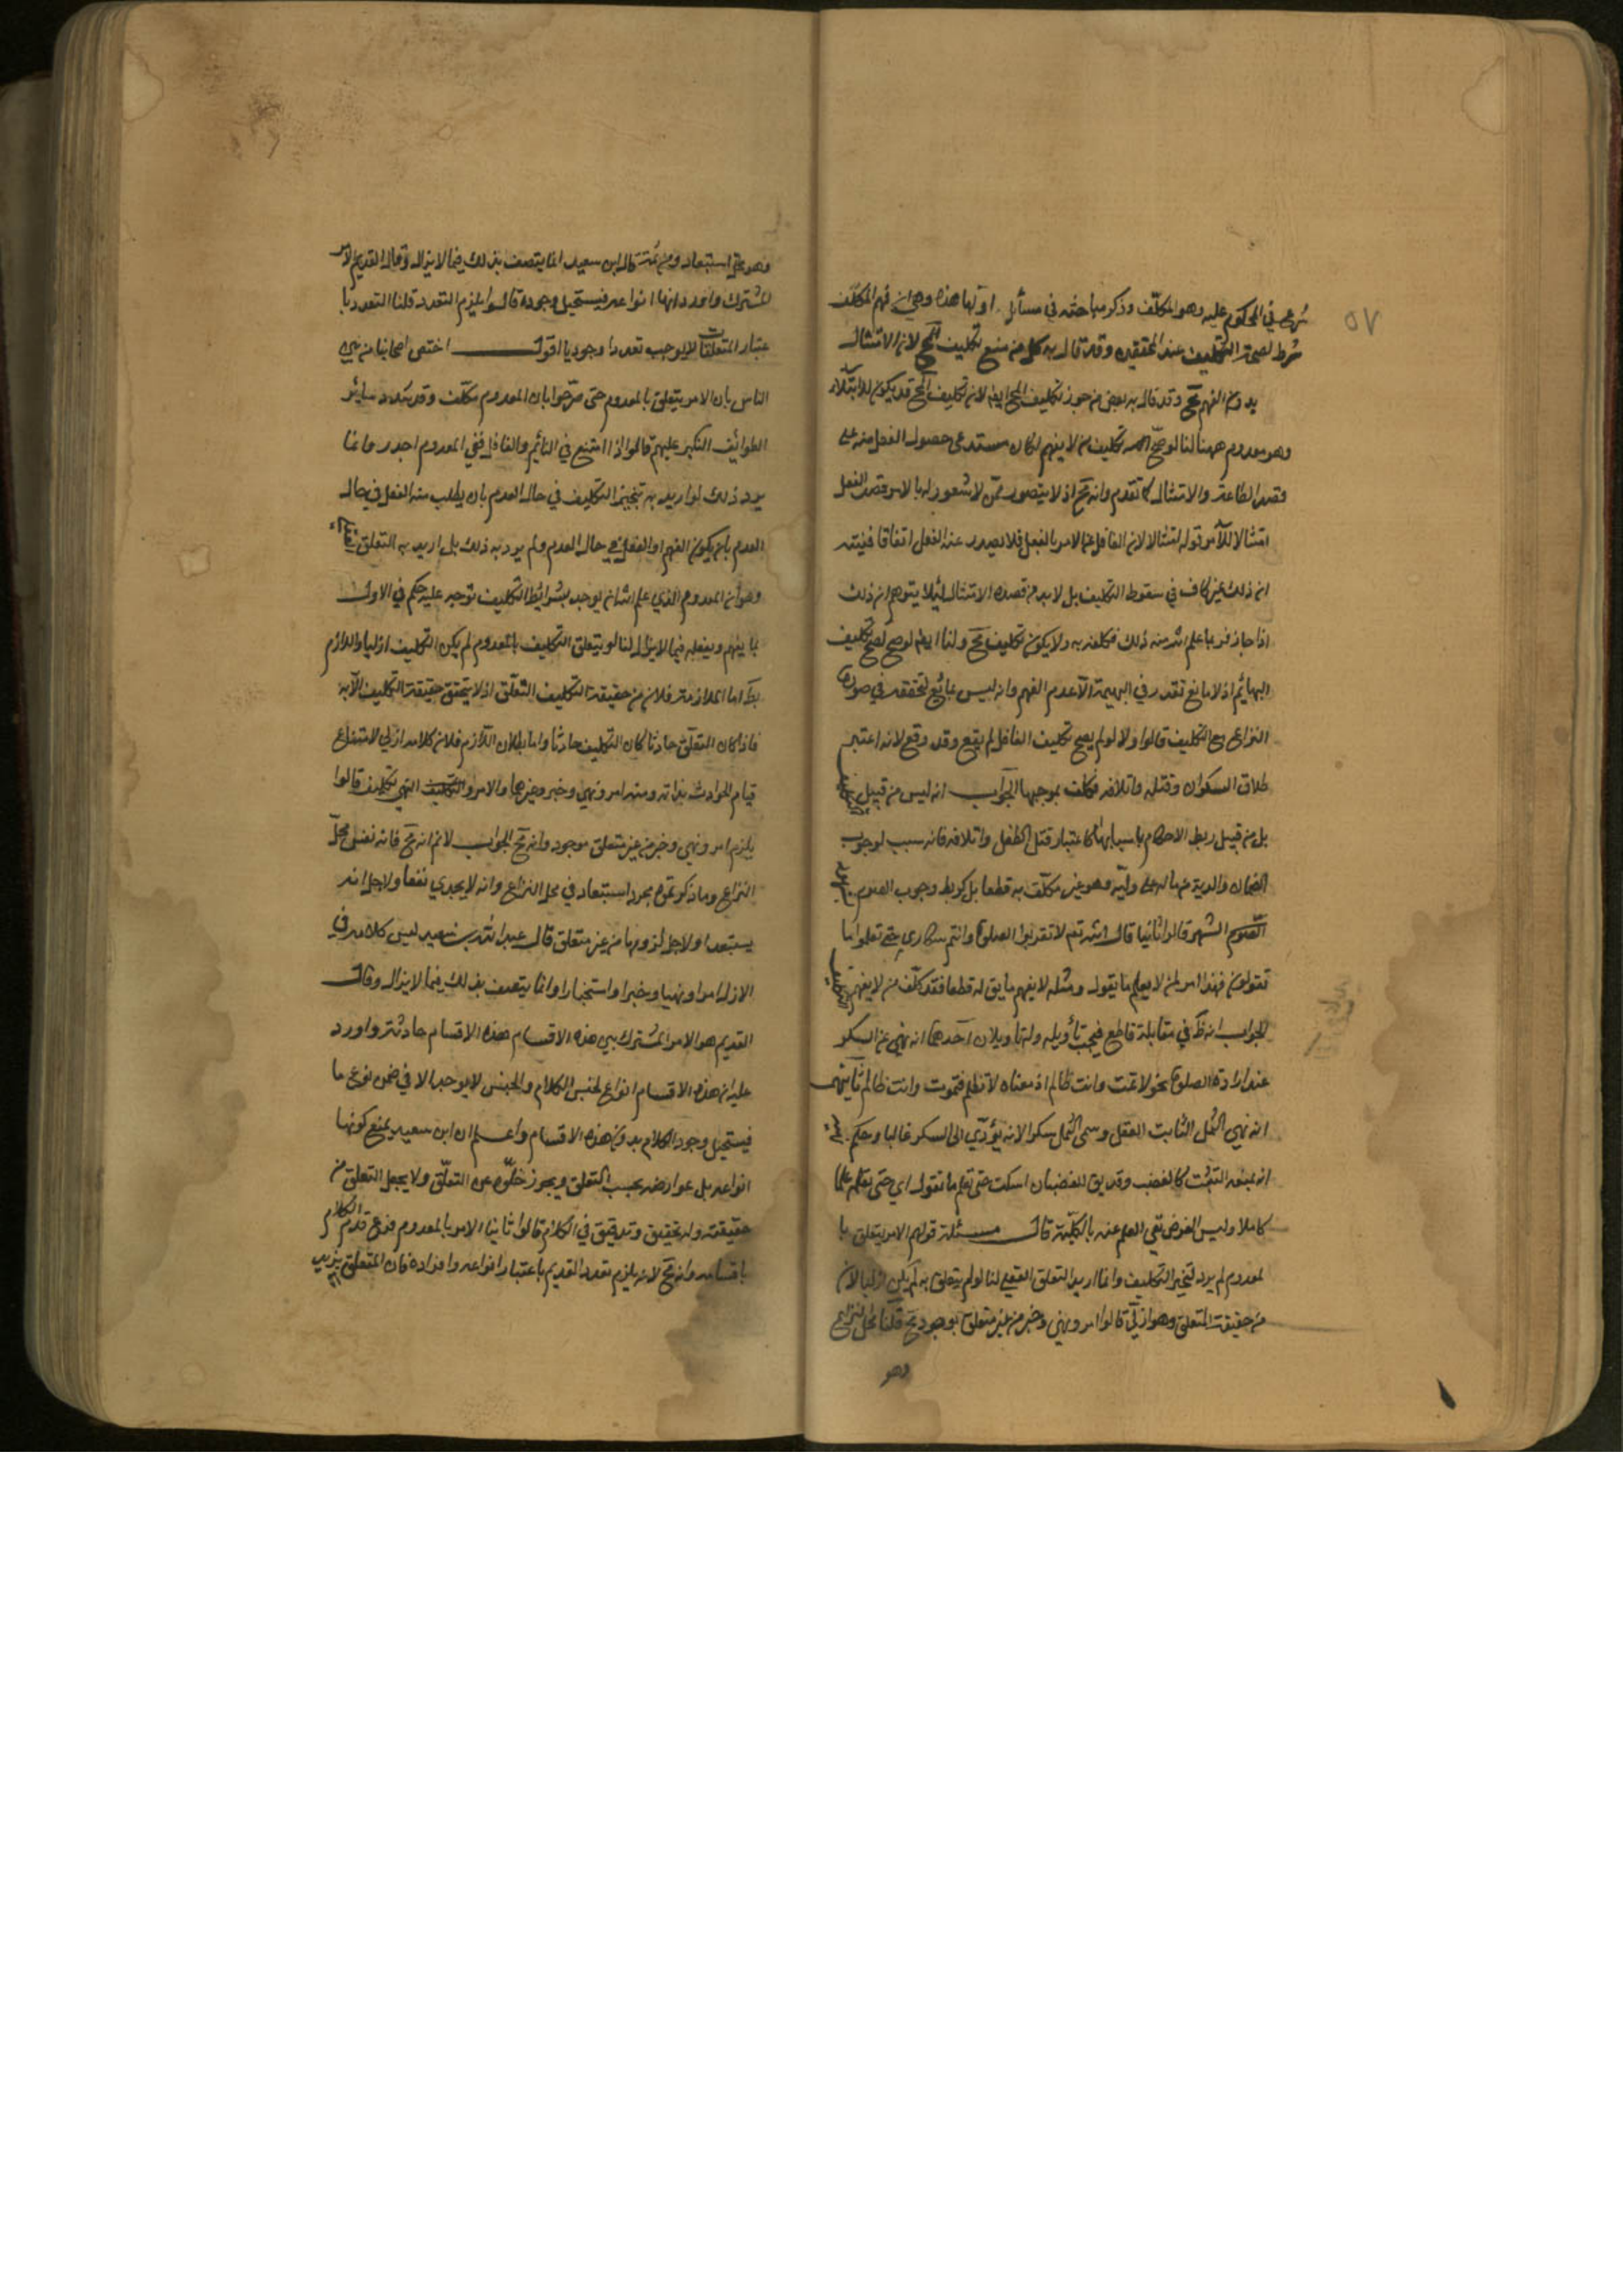 ٥٧
شرع في المحكوم عليه وهو المكلّف وذكر مباحثه في مسائل اولها هذه وهي ان فهم المكلف
شرط لصحة التكليف عند المحققين وقد قال به كل من منع تكليف المح لان الامتثال
بدون الفهم مح وقد قال به بعض من جوز تكليف المح ايضا لان تكليف المح قد يكون للابتلاء
وهو معدوم ههنا لنا لو صحّ تكليف من لا يفهم لكان مستدعى حصول الفعل منه على
قصد الطاعة والامتثال كما تقدم وانه مح اذ لا يتصور ممّن لا شعور له بالامر قصد الفعل
امتثالا للآمر قوله امتثالا لان الغافل عن الامر بالفعل قد يصدر عنه الفعل اتفاقا فنبّه
ان ذلك غير كاف في سقوط التكليف بل لا بد من قصده الامتثال لئلا يتوهم ان ذلك
اذا جاز فربما علم الله منه ذلك فكلفه به ولا يكون تكليف مح ولنا ايضا لو صح لصح تكليف
البهائم اذ لا مانع تقدر في البهيمة الا عدم الفهم وانه ليس بمانع لتحققه في صورة
النزاع مع التكليف قالوا اولا لو لم يصح تكليف الغافل لم يقع وقد وقع لانه اعتبر
طلاق السكران وقتله واتلافه فكلف بموجبها الجواب انه ليس من قبيل التكليف
بل من قبيل ربط الاحكام باسبابها كاعتبار قتل الطفل واتلافه فانه سبب لوجوب
الضمان والدية من ماله على وليّه وهو غير مكلّف به قطعا بل كربط وجوب الصوم
الشهر قالوا ثانيا قال الله تعم لا تقربوا الصلوة وانتم سكارى حتى تعلموا ما
تقولون فهذا امر لمن لا يعلم ما يقول ومثله لا يفهم ما يق له قطعا فقد كلّف من لا يفهم
الجواب انه ظ في مقابلة قاطع فيجب تأويله وله تاويلان احدهما انه نهي عن السكر
عند ارادة الصلوة نحو لا تمت وانت ظالم اذ معناه لا تظلم فتموت وانت ظالم ثانيهما
انه نهي الثمل الثابت العقل وسمى الثمل سكرا لانه يؤدّي الى السكر غالبا وحكم
انه يمنعه التثبت كالغضب وقد يق للغضبان اسكت حتى تعلم ما تقول اي حتى تعلم علما
كاملا وليس الغرض نفي العلم عنه بالكليّة قال مسئلة قولهم الامر يتعلق با
لمعدوم لم يرد تنجيز التكليف وانما اريد التعلق العقلي لنا لو لم يتعلق به لم يكن ازليا لان
من حقيقته التعلق وهو ازليّ قالوا امر ونهي وخبر من غير متعلق موجود مح قلنا محل النزاع
وهو
وهو مح استبعاد ومن ثمّت قال ابن سعيد انما يتصف بذلك فيما لا يزال وقال القديم الامر
المشترك واورد انها انواعه فيستحيل وجوده قالوا يلزم التعدد قلنا التعدد با
عتبار المتعلقات لا يوجب تعددا وجوديا اقول اختص اصحابنا من بين
الناس بان الامر يتعلق بالمعدوم حتى صرّحوا بان المعدوم مكلّف وقد شدد سائر
الطوائف النكير عليهم قالوا اذا امتنع في النائم والغافل ففي المعدوم اجدر وانما
يرد ذلك لو اريد به تنجيز التكليف في حال العدم بان يطلب منه الفعل في حال
العدم بان يكون الفهم او الفعل في حال العدم ولم يرد به ذلك بل اريد به التعلق
وهو ان المعدوم الذي علم الله انه يوجد بشرائط التكليف توجه عليه حكم في الازل
بما يفهم ويفعله فيما لا يزال لنا لو لم يتعلق التكليف بالمعدوم لم يكن التكليف ازليا واللازم
بط اما الملازمة فلان من حقيقة التكليف التعلّق اذ لا يتحقق حقيقة التكليف الا به
فاذا كان التعلّق حادثا كان التكليف حادثا واما بطلان اللازم فلان كلامه ازلي لامتناع
قيام الحوادث بذاته ومنه امر ونهي وخبر وغيرها والامر والنهي تكليف قالوا
يلزم امر ونهي وخبر من غير متعلق موجود وانه مح الجواب لا نم انه مح فانه نفس محلّ
النزاع وما ذكرتموه مجرد استبعاد في محل النزاع وانه لا يجدي نفعا ولاجل انه
يستبعد اولاجل لزومها من غير متعلق قال عبد الله بن سعيد ليس كلامه في
الازل امرا ونهيا وخبرا واستخبارا وانما يتصف بذلك فيما لا يزال وقال
القديم هو الامر المشترك بين هذه الاقسام هذه الاقسام حادثة واورد
عليه ان هذه الاقسام انواع لجنس الكلام والجنس لا يوجد الا في ضمن نوع ما
فيستحيل وجود الكلام بدون هذه الاقسام واعلم ان ابن سعيد يمنع كونها
انواعه بل عوارضه بحسب التعلق ويجوز خلّوه عن التعلّق ولا يجعل التعلق من
حقيقته وله تحقيق وتدقيق في الكلام قالوا ثانيا الامر بالمعدوم فرع قدم الكلام
باقسامه وانه مح لانه يلزم تعدد القديم باعتبار انواعه وافراده فان المتعلق بزيد